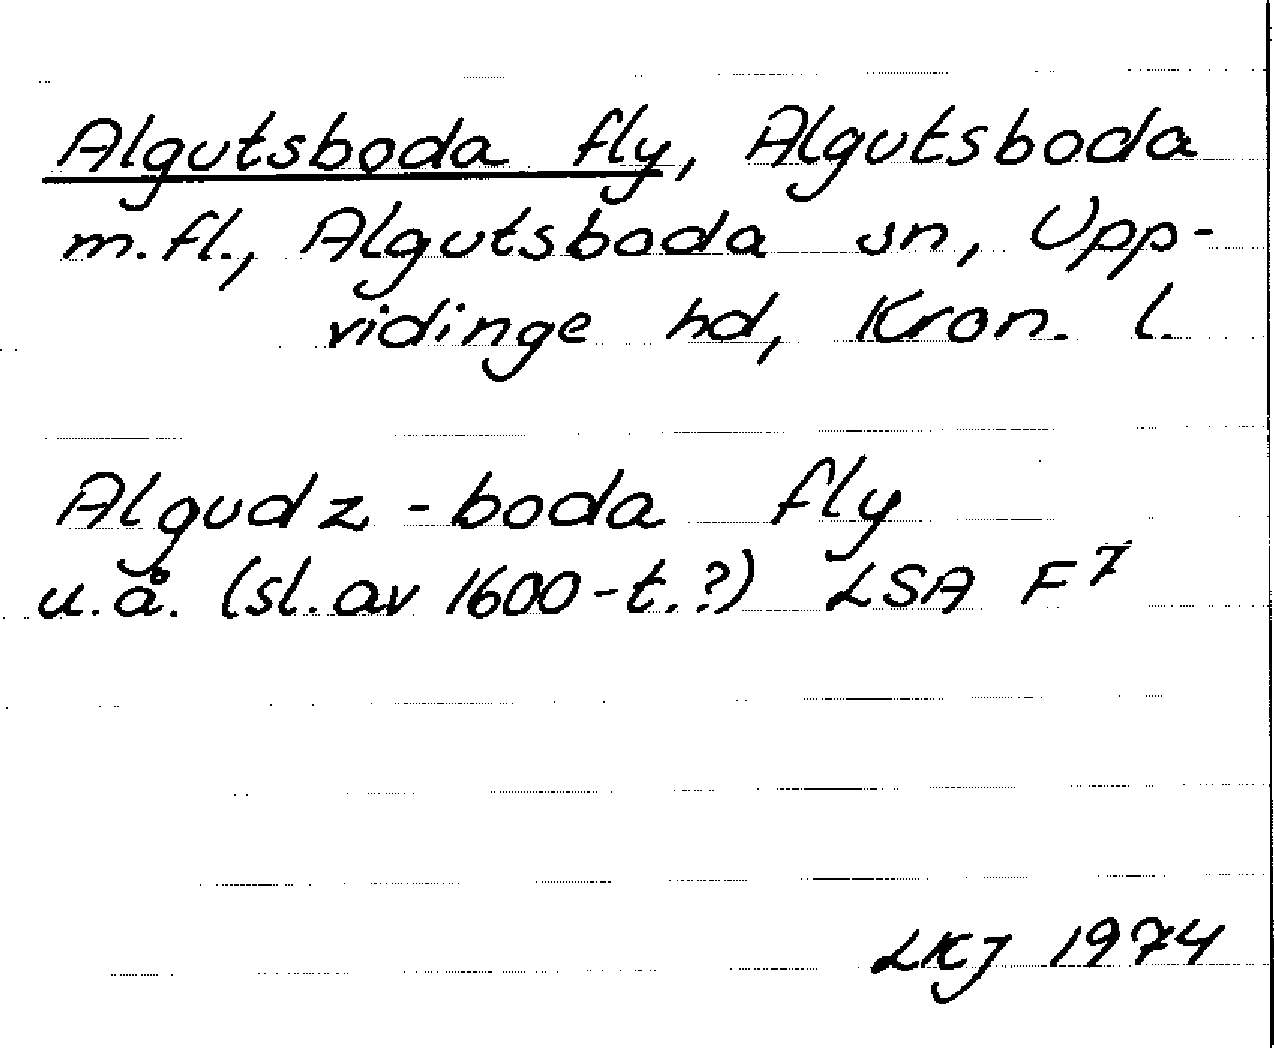 Algutsboda fly, Algutsboda
m.fl., Algutsboda sn, Upp-
vidinge hd, Kron. l.
Algudz-boda fly
u.å. (sl. av 1600-t.?) LSA F⁷
LKJ 1974